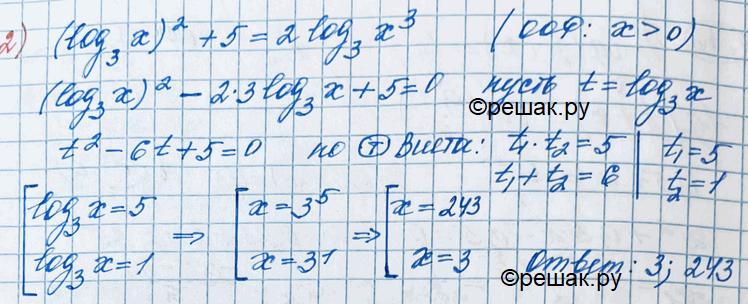 2) (log₃x)² + 5 = 2 log₃x³ (ООФ: x>0)
(log₃x)² - 2·3 log₃x + 5 = 0 пусть t = log₃x
©решак.ру
t² - 6t + 5 = 0 по Ⓣ Виета: t₁·t₂ = 5 | t₁ = 5
t₁ + t₂ = 6 | t₂ = 1
[log₃x = 5 ⇒ [x = 3⁵ ⇒ [x = 243
log₃x = 1 x = 3¹ x = 3 Ответ: 3; 243
©решак.ру